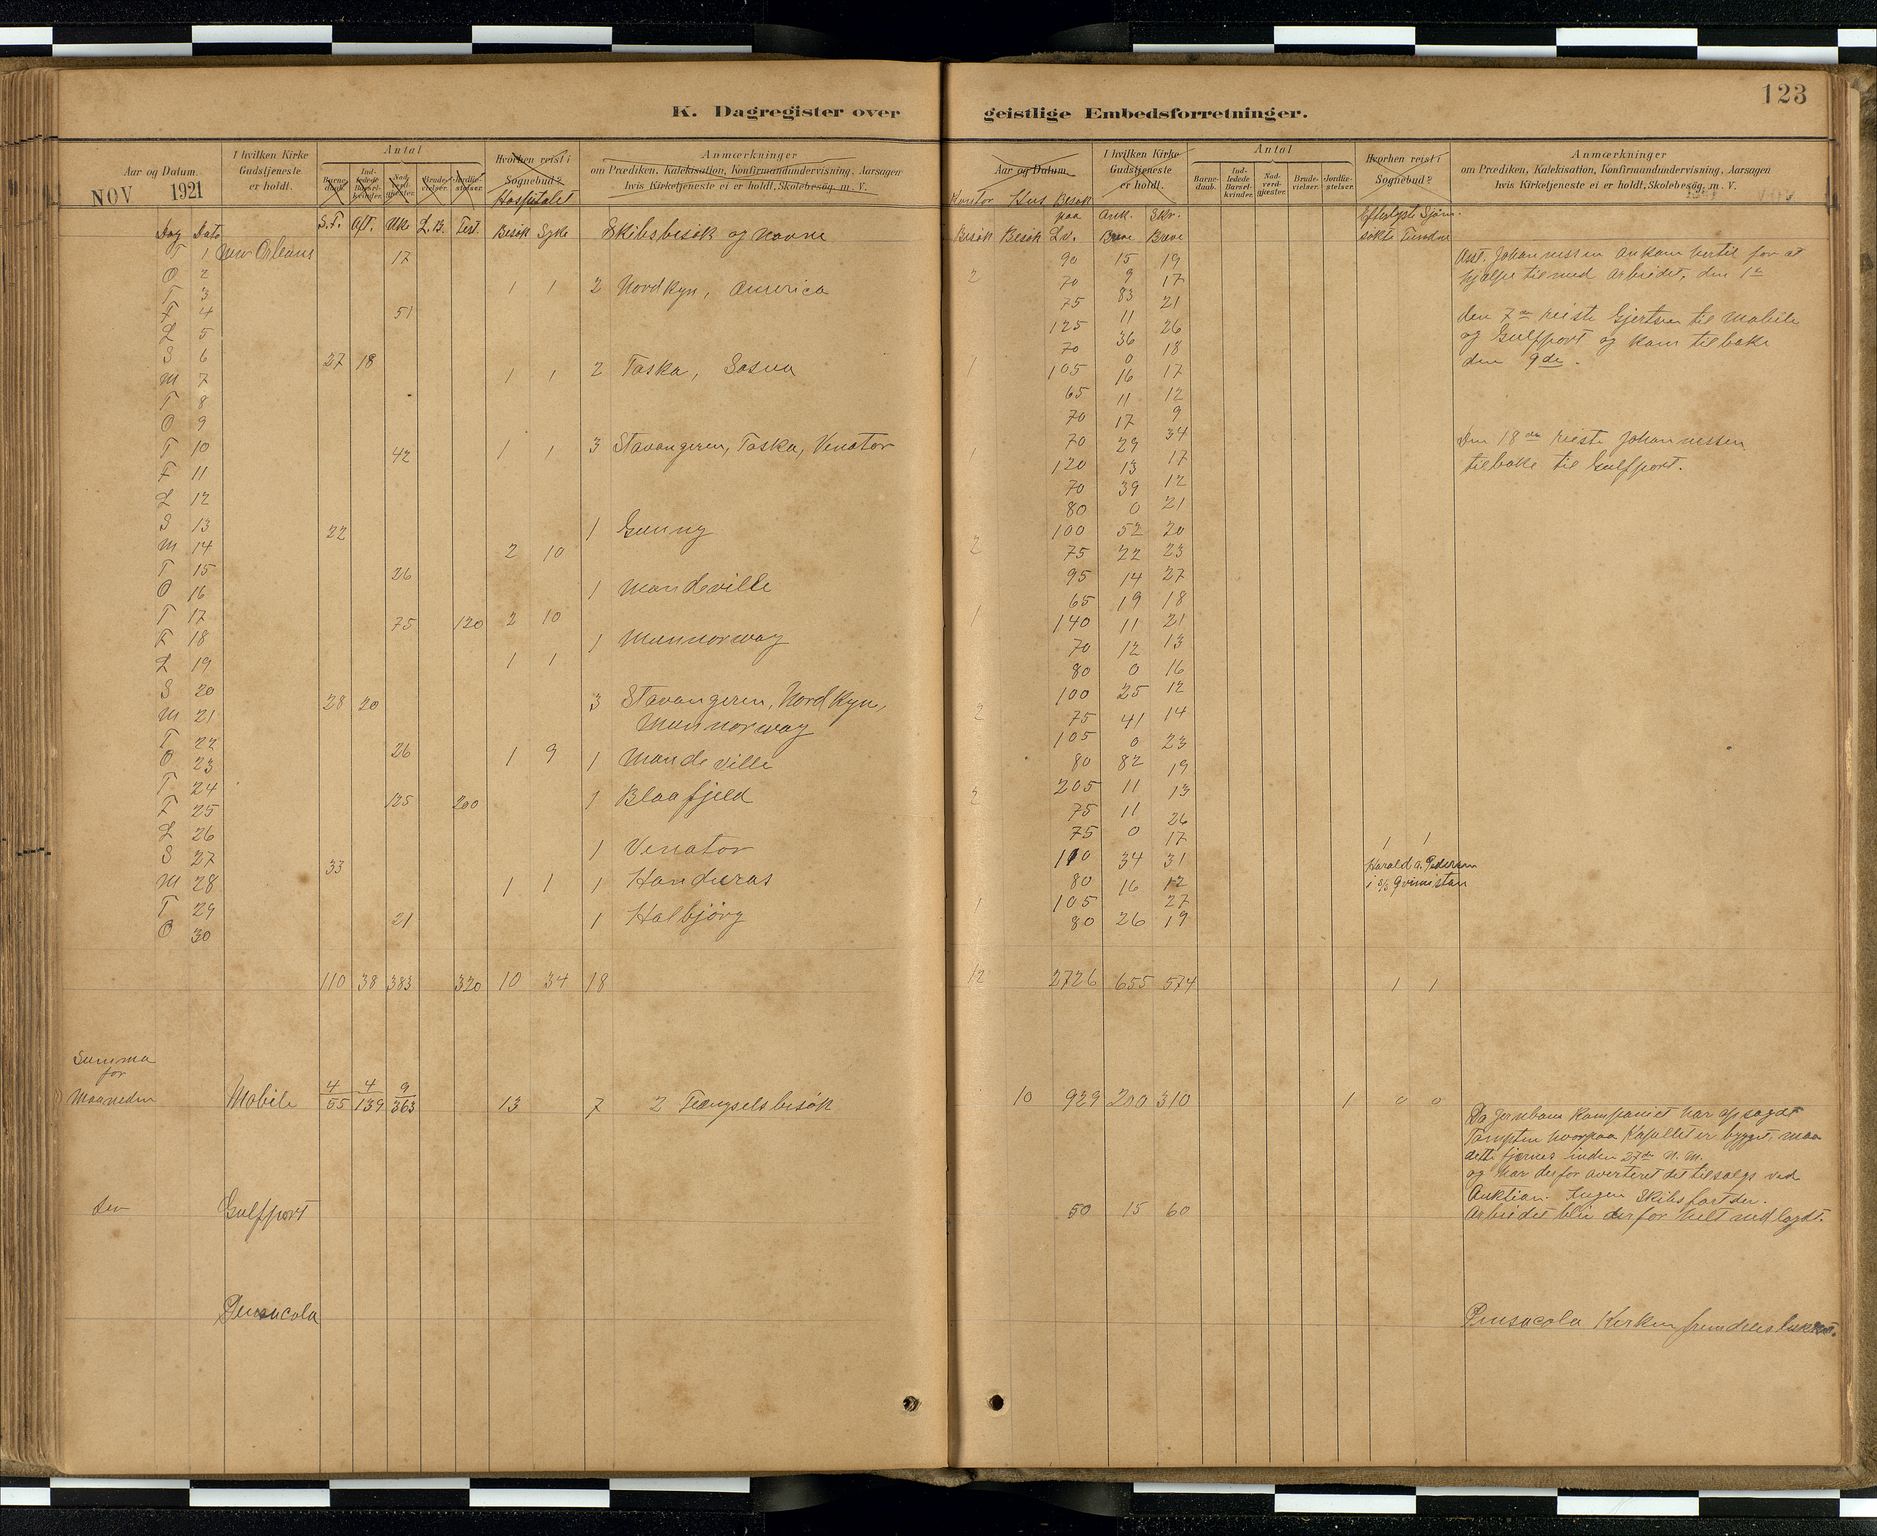 K. Dagregister over geistlige Embedsforretninger.
123
Aar og Datum.
NOV 1921
I hvilken Kirke Gudstjeneste er holdt.
Antal
Barnedaab. Indledede Barselkvinder. Nadverdgjester. Brudevielser. Jordfæstelser.
Hvorhen reist i Sognebud?
Hospitalet
Anmærkninger
om Prædiken, Katekisation, Konfirmandundervisning, Aarsagen
hvis Kirketjeneste ei er holdt, Skolebesøg, m. V.
Aar og Datum.
I hvilken Kirke Gudstjeneste er holdt.
Antal
Barnedaab. Indledede Barselkvinder. Nadverdgjester. Brudevielser. Jordfæstelser.
Hvorhen reist i Sognebud?
Anmærkninger
om Prædiken, Katekisation, Konfirmandundervisning, Aarsagen
hvis Kirketjeneste ei er holdt, Skolebesøg, m. V.
Dag Dato S.F. Aft. Uke L.B. Fest. Besøk Syke Skibsbesøk og navne
Kontor Besøk Hus Besøk Besøk paa Lv. Ank. Breve Skr. Breve Efterlyste Sjöm. søkte Fundne
T 1 New Orleans 17 90 15 19
O 2 2 70 9 17
T 3 1 1 2 Nordkyn, America 75 83 21
F 4 51 125 11 26
L 5 70 36 18
S 6 27 18 105 0 17
M 7 1 1 2 Taska, Sosua 1 65 16 12
T 8 70 11 9
O 9 70 17 34
T 10 42 1 1 3 Stavangeren, Taska, Venator 1 120 29 17
F 11 70 13 12
L 12 80 39 21
S 13 22 1 Gunny 100 0 20
M 14 2 10 2 75 52 23
T 15 26 95 22 27
O 16 1 Mandeville 65 14 18
T 17 75 120 2 10 1 140 19 21
F 18 1 Munnorway 70 11 13
L 19 1 1 80 12 16
S 20 28 20 3 Stavangeren, Nordkyn, 100 0 12
M 21 Munnorway 2 75 25 14
T 22 105 41 23
O 23 26 1 9 1 Mandeville 80 0 19
T 24 125 200 1 Blaafjeld 2 205 82 13
F 25 75 11 26
L 26 1 Venator 75 11 17 1 1
S 27 33 110 0 31
M 28 1 1 1 Honduras 80 34 12
T 29 1 105 16 27
O 30 21 1 Halbjörg 80 26 19
Harald A. Pedersen
110 38 383 320 10 34 18 12 2726 655 574 1 1
Ass. Johannessen ankom hertil for at
hjælpe til med arbeidet, den 1ste
den 7de reiste Gjertsen til Mobile
og Gulfport og kom tilbake
den 9de.
Den 18de reiste Johannessen
tilbake til Gulfport.
Summa
for
Maaneden Mobile 4/55 4/139 9/363 13 7 2 Fængselsbesøk 10 929 200 310 1 0 0
Da Jernbane Kompaniet har opsagdt
Tompten hvorpaa Kapellet er bygget, maa
dette fjernes inden 27de N. M.
og har derfor averteret det tilsalgs ved
Auktion. Ingen Skibsfart der.
Arbeidet blir derfor helt nedlagdt.
Gulfport 50 15 60
Pensacola
Pensacola Kirken fremdeles lukket.